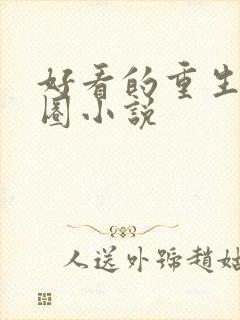 好看的重生
圈小説
人送外號趙姑